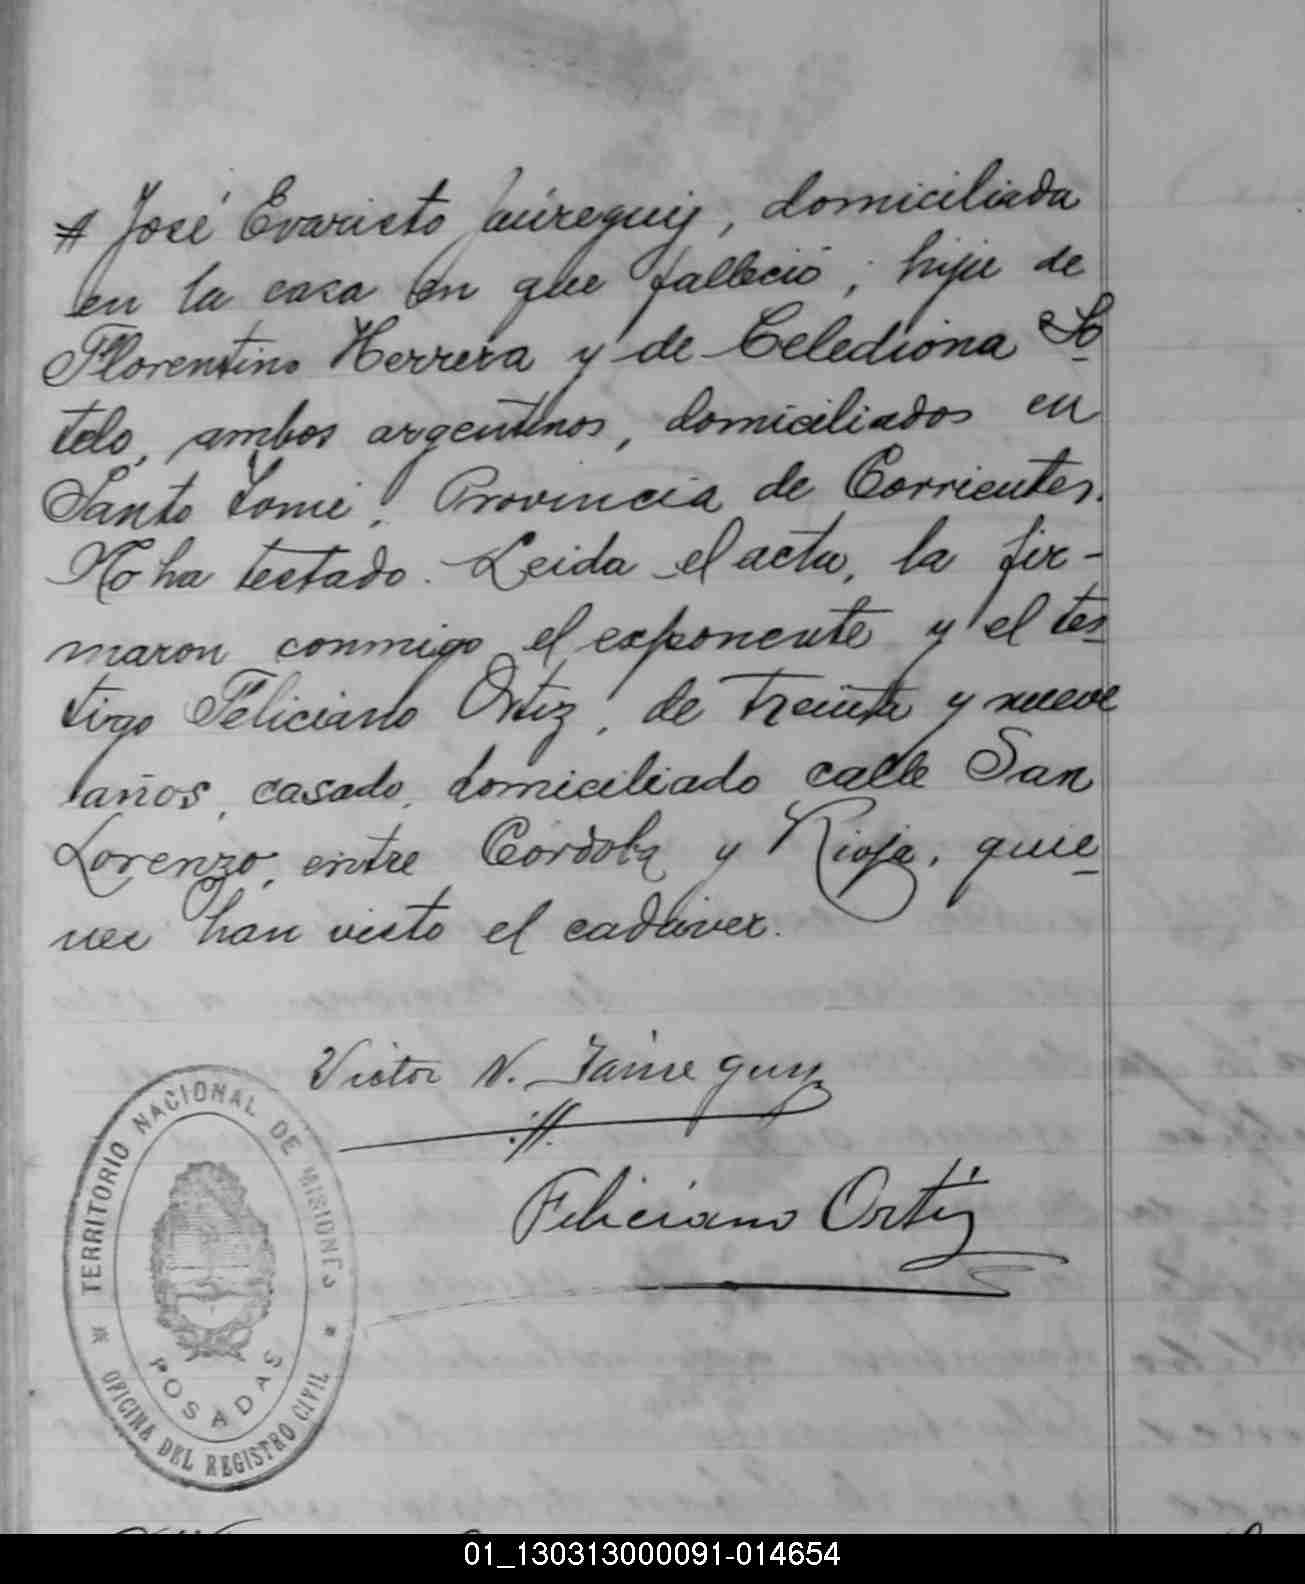 # José Evaristo Jaúreguiy, domiciliada
en la casa en que falleció; hija de
Florentino Herrera y de Celediona So
telo, ambos argentinos, domiciliados en
Santo Tomé, Provincia de Corrientes.
No ha testado. Leida el acta, la fir-
maron conmigo el exponente y el tes
tigo Feliciano Ortiz, de treinta y nueve
años, casado, domiciliado calle San
Lorenzo, entre Córdoba y Rioja, quie
nes han visto el cadáver.
Victor N. Jaureguy
Feliciano Ortiz
TERRITORIO NACIONAL DE MISIONES
POSADAS
* OFICINA DEL REGISTRO CIVIL *
01_130313000091-014654